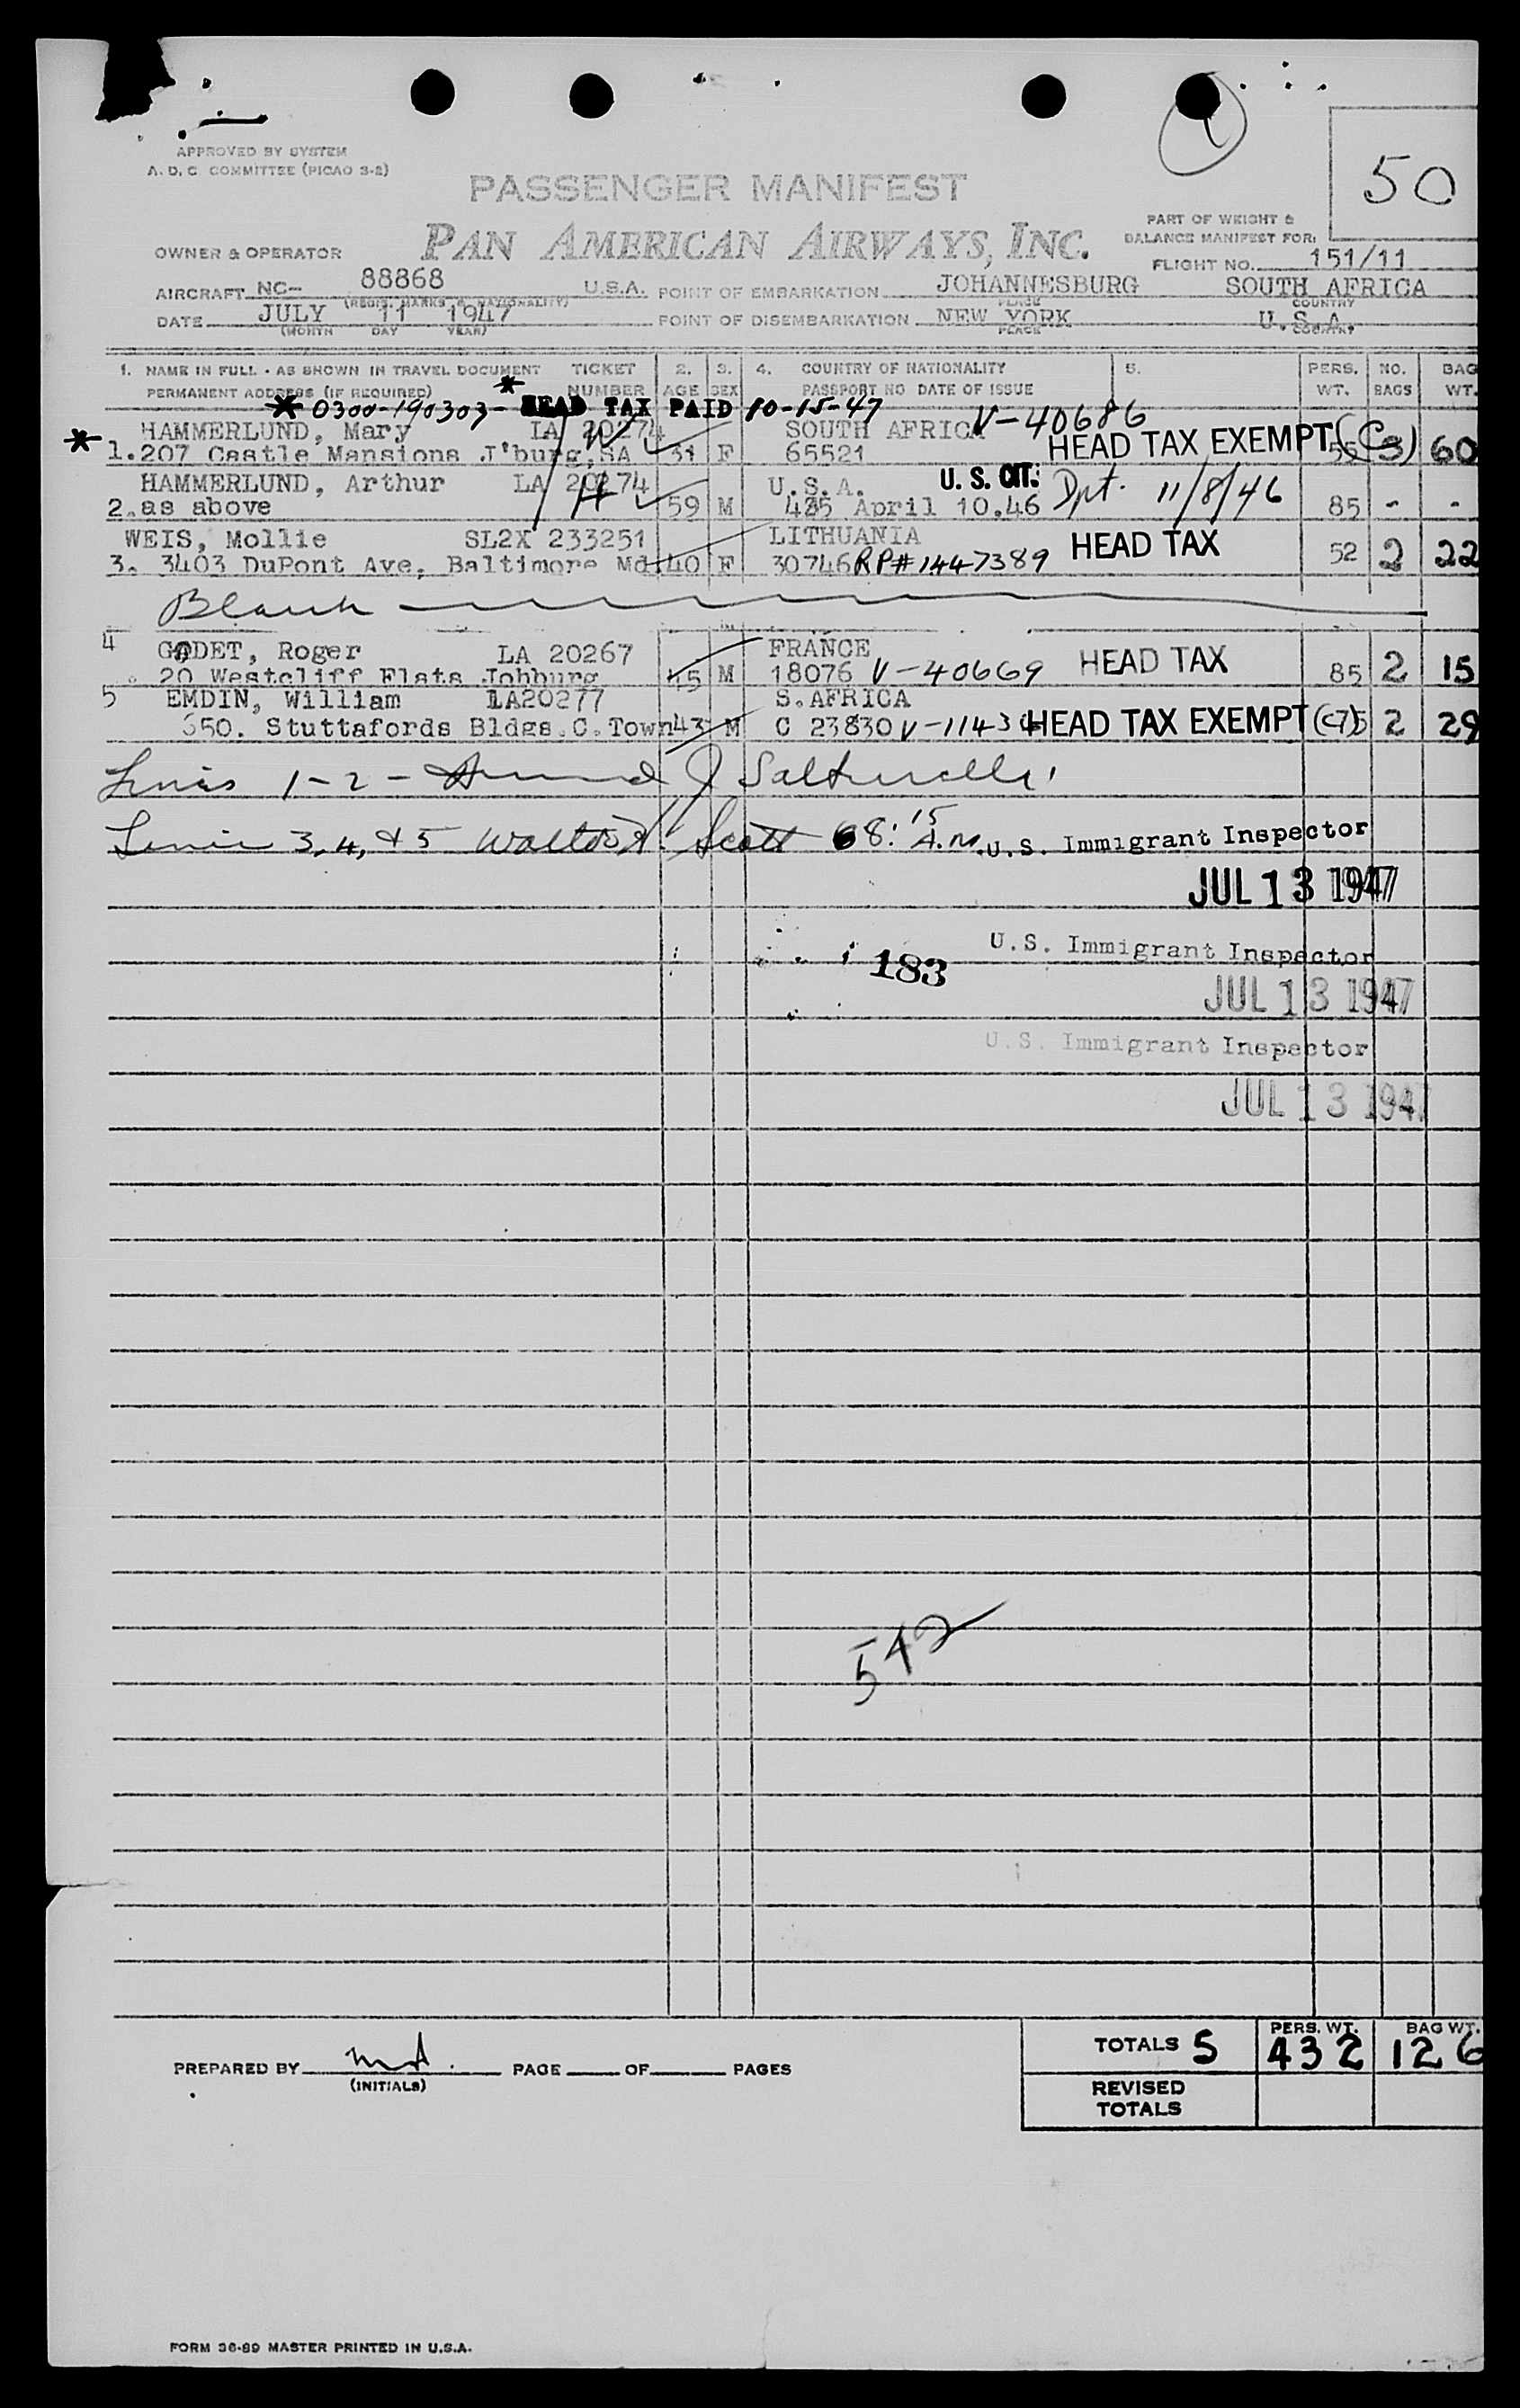 APPROVED BY SYSTEM
A. D. C. COMMITTEE (PICAO S-2)
50
PASSENGER MANIFEST
PAN AMERICAN AIRWAYS, INC.
PART OF WEIGHT &
BALANCE MANIFEST FOR:
OWNER & OPERATOR
FLIGHT NO. 151/11
AIRCRAFT NC- 88868 U.S.A. POINT OF EMBARKATION JOHANNESBURG SOUTH AFRICA
(REGIS. MARKS & NATIONALITY) PLACE COUNTRY
DATE JULY 11 1947 POINT OF DISEMBARKATION NEW YORK U.S.A.
(MONTH DAY YEAR) PLACE COUNTRY
1. NAME IN FULL - AS SHOWN IN TRAVEL DOCUMENT TICKET 2. 3. 4. COUNTRY OF NATIONALITY 5. PERS. NO. BAG
PERMANENT ADDRESS (IF REQUIRED) NUMBER AGE SEX PASSPORT NO DATE OF ISSUE WT. BAGS WT.
* 0300-190303- * HEAD TAX PAID 10-15-47
HAMMERLUND, Mary LA 20274 SOUTH AFRICA V-40686
* 1. 207 Castle Mansions J'burg, SA 31 F 65521 HEAD TAX EXEMPT (C3) 60
HAMMERLUND, Arthur LA 20274 U.S.A. U.S. CIT.
2. as above 59 M April 10.46 Dpt. 11/8/46 85 - -
WEIS, Mollie SL2X 233251 LITHUANIA
3. 3403 DuPont Ave, Baltimore Md 40 F 30746 RP# 1447389 HEAD TAX 52 2 22
Blank
4 GODET, Roger LA 20267 FRANCE
20 Westcliff Flats Johburg 45 M 18076 V-40669 HEAD TAX 85 2 15
5 EMDIN, William LA20277 S.AFRICA
650. Stuttafords Bldgs.C.Town 43 M C 23830 HEAD TAX EXEMPT 2 29
1-2-
3, 4, & 5 Scott 8:15 A.M. U.S. Immigrant Inspector
JUL 13 1947
U.S. Immigrant Inspector
183
JUL 13 1947
U.S. Immigrant Inspector
JUL 13 1947
542
TOTALS 5 PERS. WT. 432 BAG WT. 126
PREPARED BY PAGE OF PAGES
(INITIALS)
REVISED
TOTALS
FORM 36-89 MASTER PRINTED IN U.S.A.